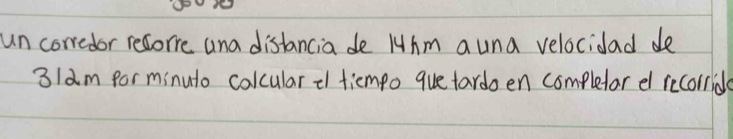 un corredor recorre una distancia de 14hm a una velocidad de
312m por minuto calcular el tiempo que tardo en completar el recorrido